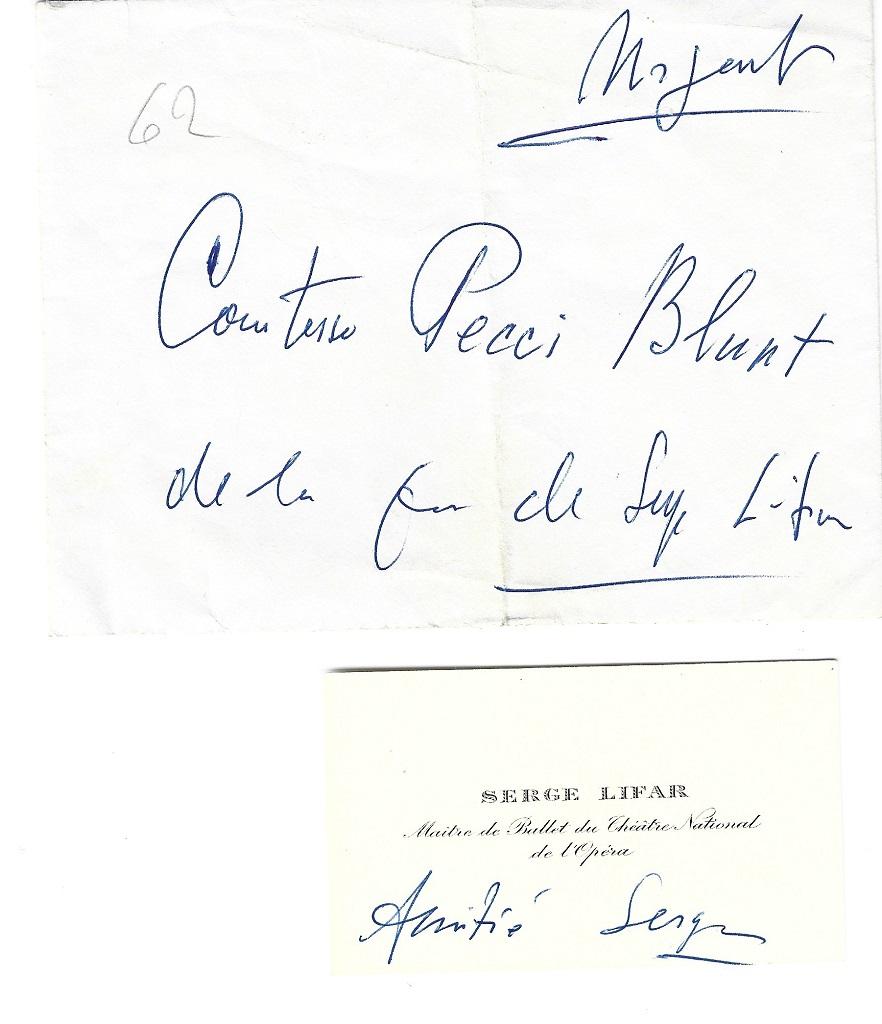 Urgent
62
Comtesse Pecci Blunt
de la part de Serge Lifar
SERGE LIFAR
Maître de Ballet du Théâtre National
de l'Opéra
Amitié Serge